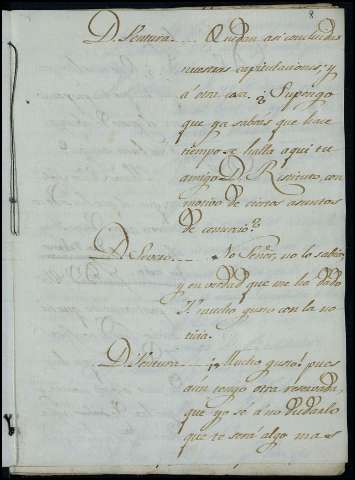 8
D. Ventura.... Quedan asi concluidas
nuestras capitulaciones, y
á otra cosa. ¿Supongo
que ya sabrás que hace
tiempo se halla aqui tu
amigo D. Respicio, con
motivo de ciertos asuntos
de comercio?
D. Severo.... No Señor, no lo sabia,
y en verdad que me ha dado
Vd. mucho gusto con la no
ticia.
D. Ventura.... ¡Mucho gusto! pues
aun tengo otra reservada,
que yo sé á no dudarlo
que te será algo mas